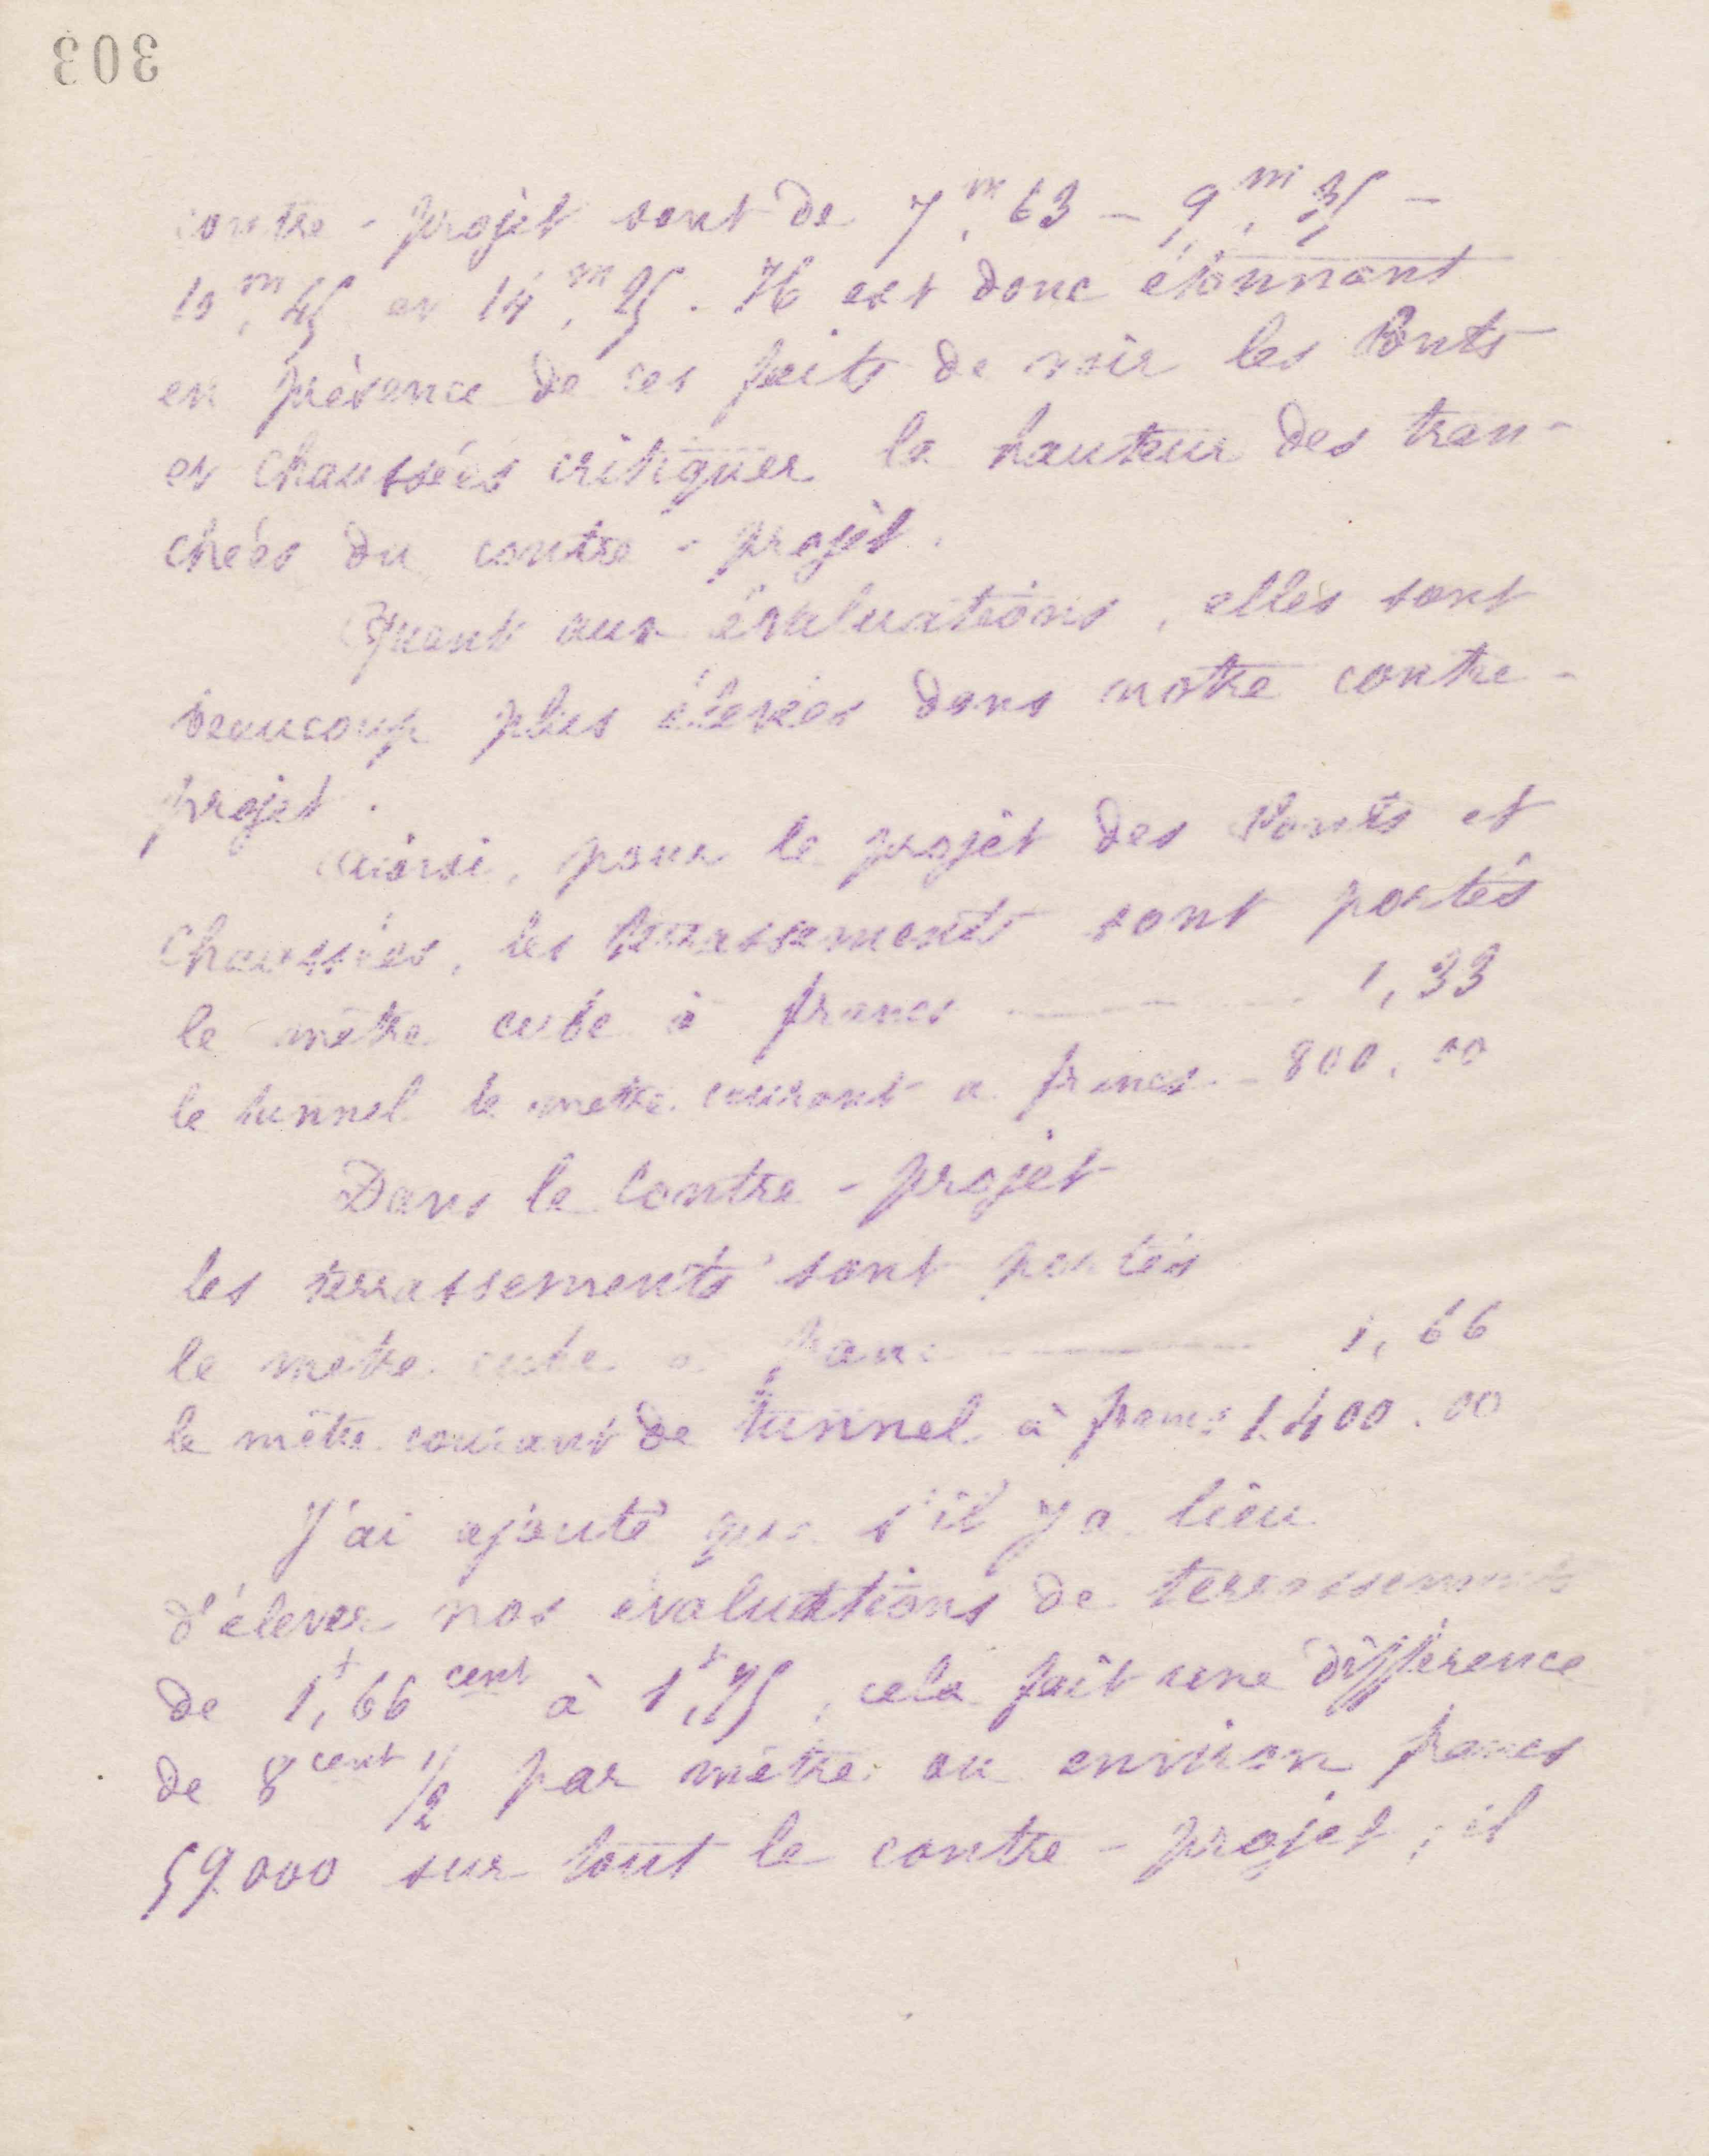 303
contre - projet sont de 7,m 63 - 9,m 35 -
10,m 45 et 14,m 25. Il est donc étonnant
en présence de ces faits de voir les Ponts
et Chaussées critiquer la hauteur des tran-
chées du contre - projet.
Quant aux évaluations, elles sont
beaucoup plus élevées dans notre contre-
projet.
Ainsi, pour le projet des Ponts et
Chaussées, les terrassements sont portés
le mètre cube à francs 1,33
le tunnel le mètre courant à francs - 800,00
Dans le Contre - projet
les terrassements sont portés
le mètre cube à franc 1,66
le mètre courant de tunnel à francs 1.400.00
J'ai ajouté que s'il y a lieu
d'élever nos évaluations de terrassements
de 1,f 66 cent à 1,f 75, cela fait une différence
de 8 cent 1/2 par mètre ou environ francs
59.000 sur tout le contre - projet ; il